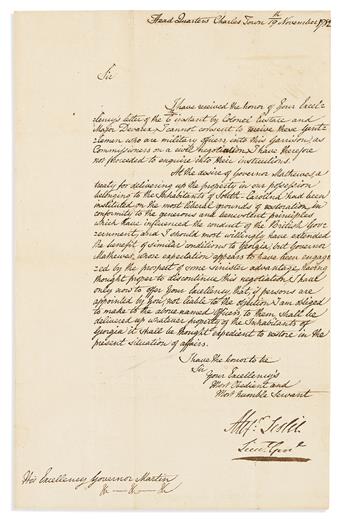 Head Quarters Charles Town 19th November 1782
Sir
I have received the honor of Your Excel-
lency's letter of the 6th instant by Colonel Eustace and
Major Deveaux. I cannot consent to receive these Gentle-
lemen who are military officers into this Garrison, as
Commissioners on a Civil Negotiation. I have therefore
not proceeded to enquire into their instructions.
At the desire of Governor Mathewes, a
treaty for delivering up the property in our possession
belonging to the Inhabitants of South-Carolina had been
instituted on the most liberal grounds of restoration in
conformity to the generous and benevolent principles
which have influenced the conduct of the British Gov-
ernment, and I should most willingly have extended
the benefit of similar conditions to Georgia, but Governor
Mathewes, whose expectation appears to have been engag-
ed by the prospect of some sinister advantage, having
thought proper to discontinue this negotiation, I have
only now to offer Your Excellency that, if persons are
appointed by You, not liable to the objection I am obliged
to make to the above named Officers, to them shall be
delivered up whatever property of the Inhabitants of
Georgia it shall be thought expedient to restore in the
present situation of affairs.
I have the honor to be
Sir
Your Excellency's
Most Obedient and
Most humble Servant
Alexr. Leslie
Lieut. Genl.
His Excellency Governor Martin
&c &c &c